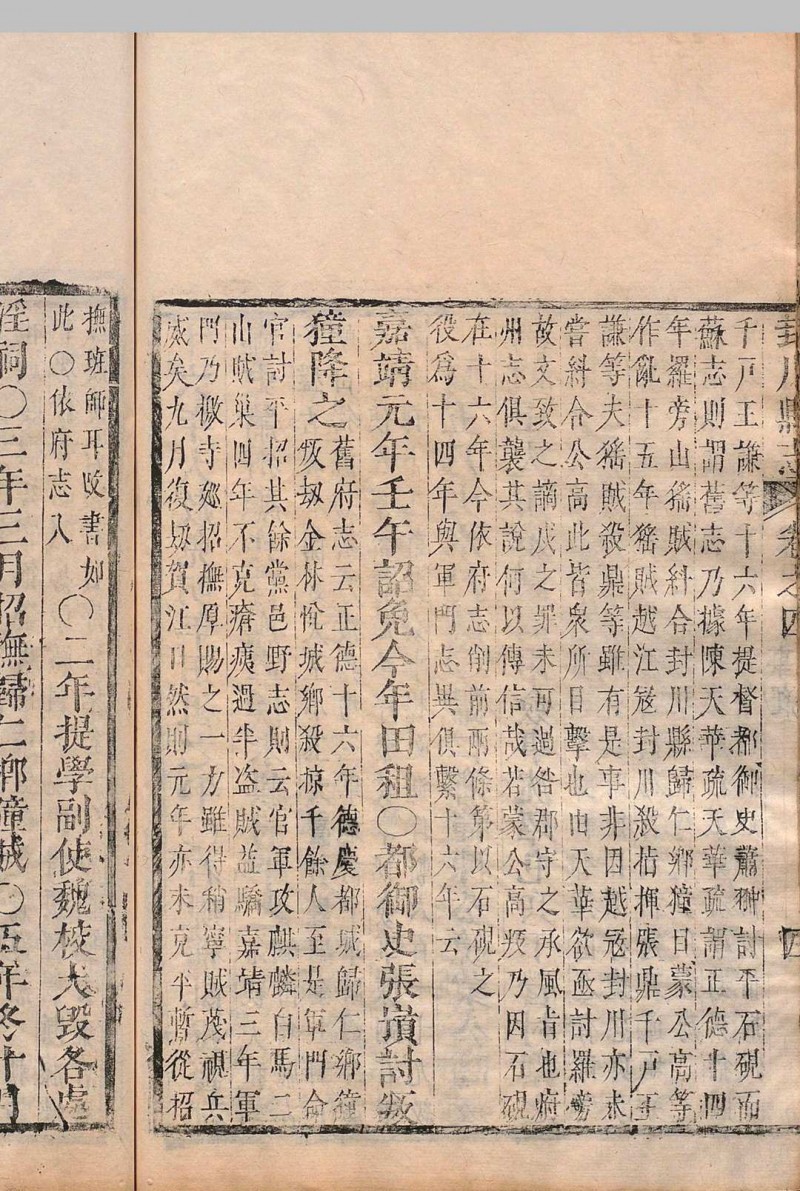 封川縣志 卷之四 四
千戸王謙等十六年提督都御史蕭翀討平石硯而
蘇志則謂舊志乃據陳天華疏天華疏謂正德十四
年羅旁山猺賊糾合封川縣歸仁鄉獞目蒙公高等
作亂十五年猺賊越江冦封川殺指揮張鼎千戸王
謙等夫猺賊殺鼎等雖有是事非因越冦封川亦未
嘗糾合公高此皆衆所目擊也由天華欲亟討羅旁
故文致之謫戍之罪未可過咎郡守之承風旨也府
州志俱襲其說何以傳信哉若蒙公高叛乃因石硯
在十六年今依府志削前兩條第以石硯之
役爲十四年與軍門志異俱繫十六年云
嘉靖元年壬午詔免今年田租〇都御史張嵿討叛
獞降之
舊府志云正德十六年德慶都城歸仁鄉獞
叛刼金林悅城鄉殺掠千餘人至是軍門命
官討平招其餘黨邑野志則云官軍攻麒麟白馬二
山賊巢四年不克瘠痍過半盗賊益驕嘉靖三年軍
門乃檄寺廵招撫厚賜之一方雖得稍寧賊蔑視兵
威矣九月復刼賀江口然則元年亦未克平暫從招
撫班師耳故書如
此〇依府志入
〇二年提學副使魏校大毀各處
淫祠〇三年三月招撫歸仁鄉獞賊〇五年